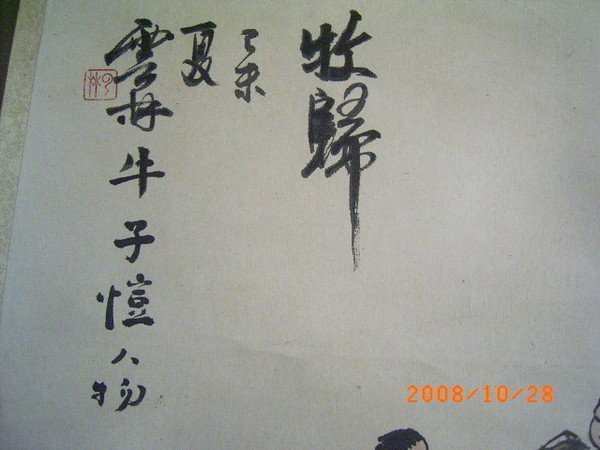 牧歸
己未
夏
雲林牛子愷人物
2008/10/28